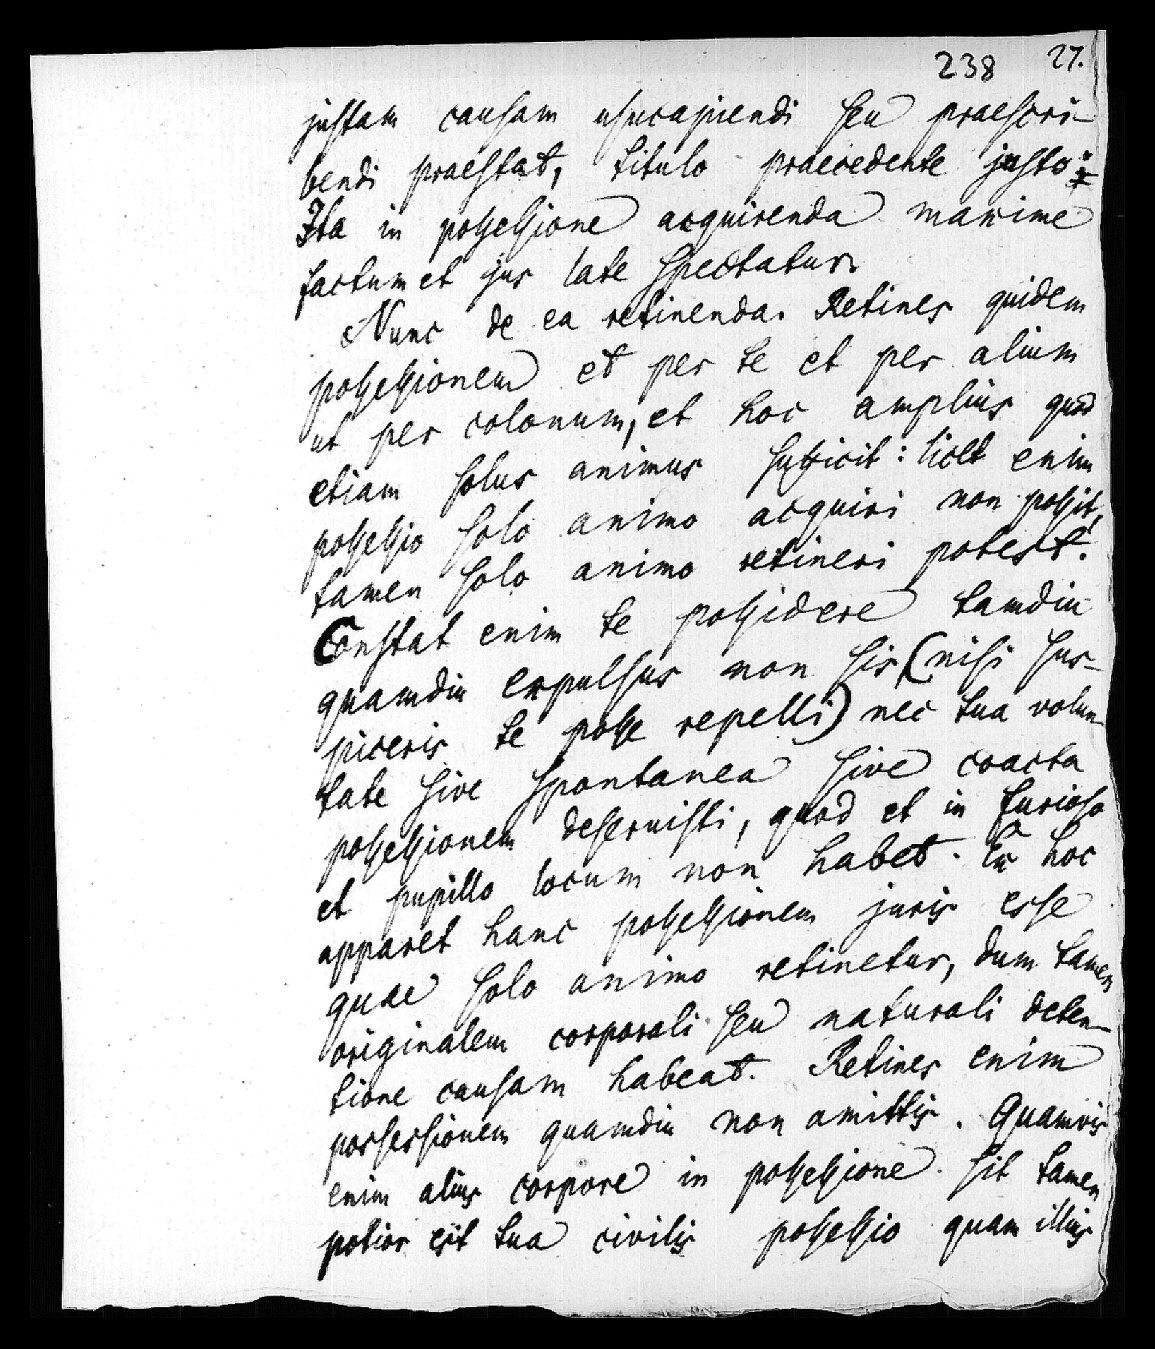 238 27.
justam causam usucapiendi seu praescri-
bendi praestat, titulo praecedente justo
Ita in possessione acquirenda maxime
factum et jus late spectatur.
Nunc de ea retinenda. Retines quidem
possessionem et per te et per alium
ut per colonum, et hoc amplius quod
etiam solus animus sufficit: licet enim
possessio solo animo acquiri non possit,
tamen solo animo retineri potest.
Constat enim te possidere tamdiu
quamdiu expulsus non sis (nisi sus-
piceris te posse repelli) nec tua volun-
tate sive spontanea sive coacta
possessionem deseruisti, quod et in furioso
et pupillo locum non habet. Ex hoc
apparet hanc possessionem juris esse
quae solo animo retinetur, dum tamen
originalem corporali seu naturali deten-
tione causam habeat. Retines enim
possessionem quamdiu non amittis. Quamvis
enim alius corpore in possessione sit tamen
potior est tua civilis possessio quam illius